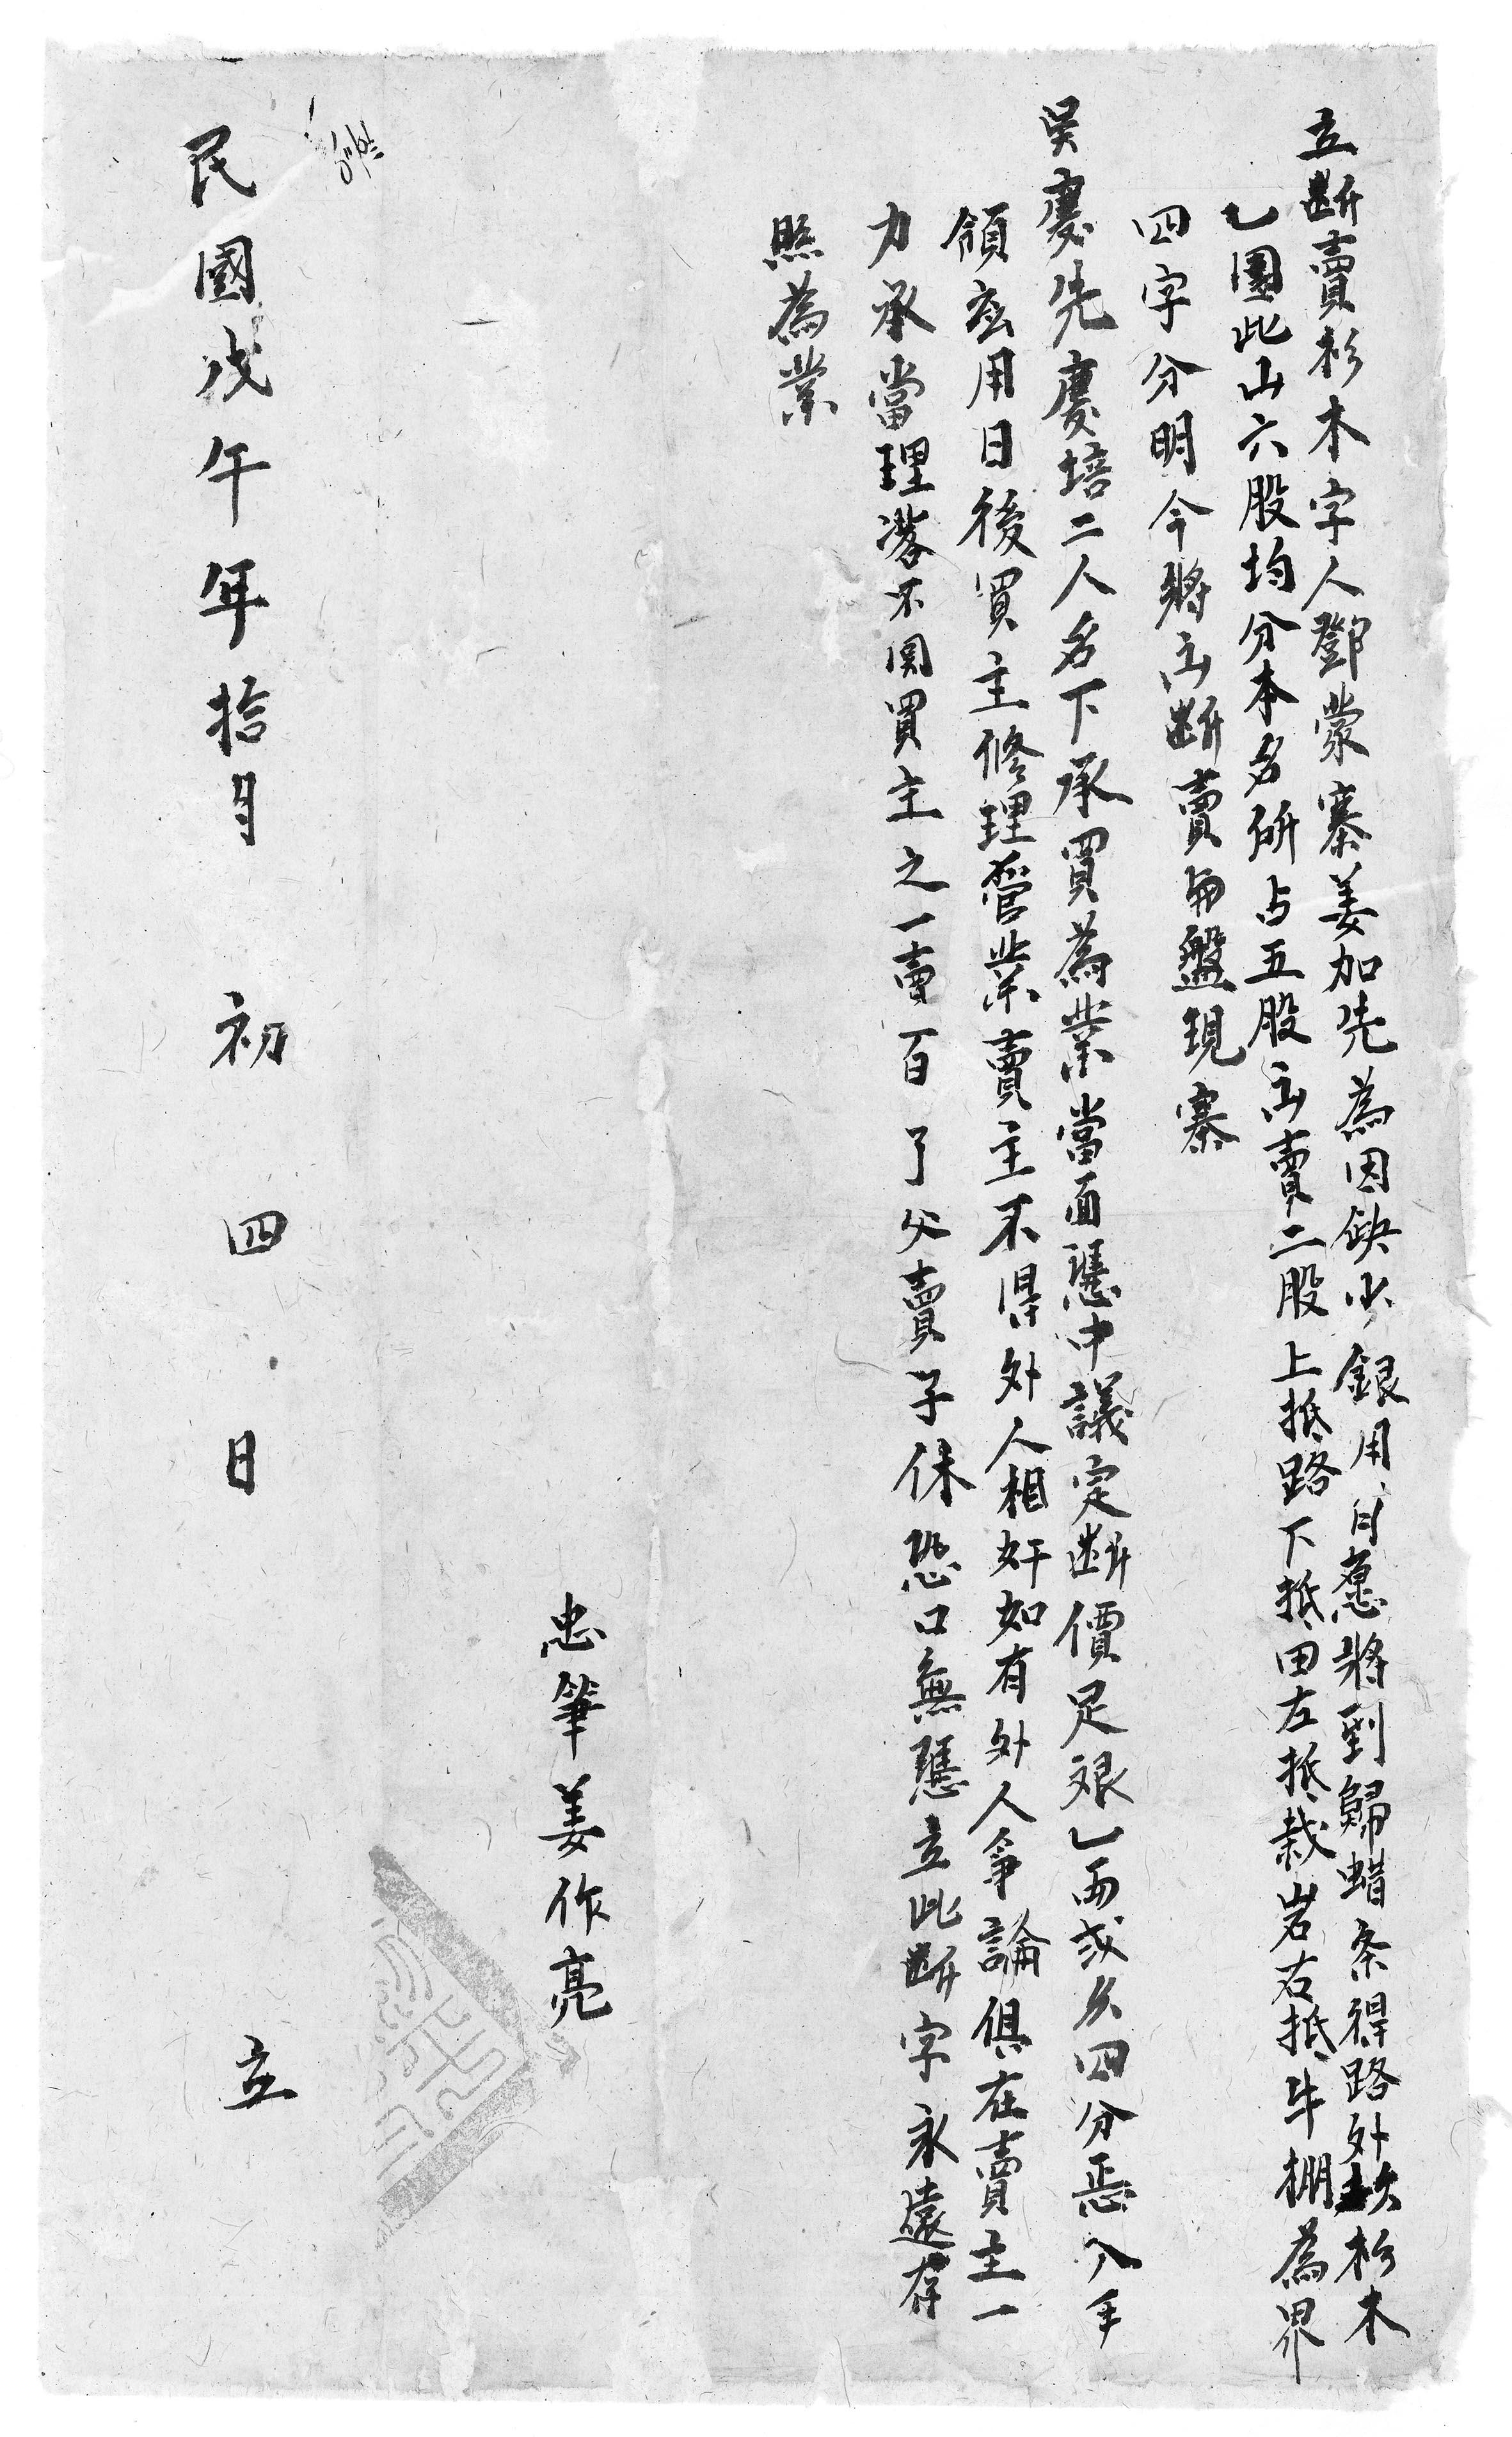 立断賣杉木字人鄧蒙寨姜加先為因缺少銀用自愿將到歸蜡条得路外坎杉木
乚團此山六股均分本名所占五股出賣二股上抵路下抵田左抵栽岩右抵牛棚為界
四字分明今將出断賣與盤現寨
吳慶先慶培二人名下承買為業當面憑中議定断價足艮乚両or分四分悉入手
領應用日後買主修理營業賣主不得外人相奸如有外人争論俱在賣主一
力承當理落不関買主之一賣百了父賣子休恐口無憑立此断字永遠存
照為業
忠筆姜作亮
民國戊午年拾月初四日立